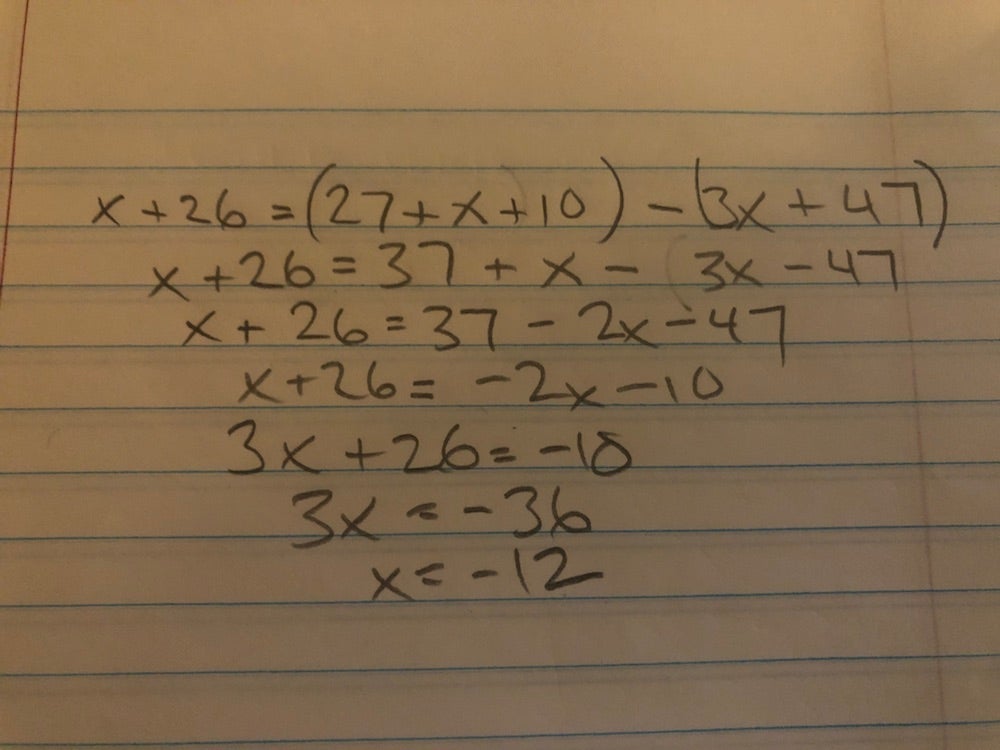 x + 26 = (27 + x + 10) - (3x + 47)
x + 26 = 37 + x - 3x - 47
x + 26 = 37 - 2x - 47
x + 26 = -2x - 10
3x + 26 = -10
3x = -36
x = -12